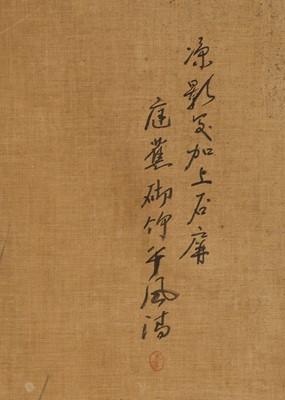 凉影交加上石屏
庭蕉砌竹午風清